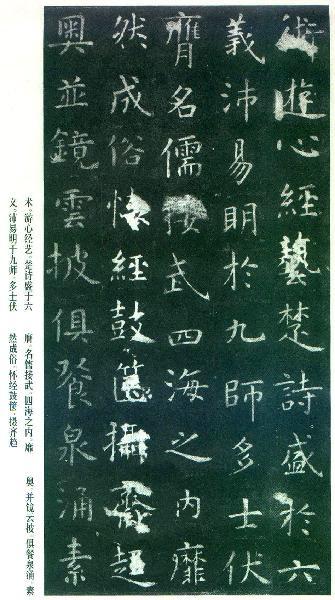 術遊心經藝楚詩盛於六
義沛易明於九師多士伏
膺名儒接武四海之內靡
然成俗懷經鼓篋攝齊趨
奧並鏡雲披俱餐泉涌素
术，游心经艺，楚诗盛于六
义，沛易明于九师，多士伏
膺，名儒接武，四海之内，靡
然成俗，怀经鼓箧，摄齐趋
奥，并镜云披，俱餐泉涌，素